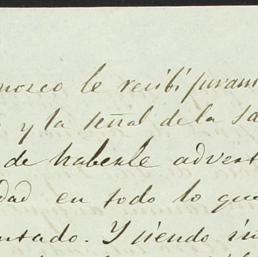 nosco le recibi juram
y la señal de la Sa
de haberle advert
dad en todo lo que
untado. Y siendo in